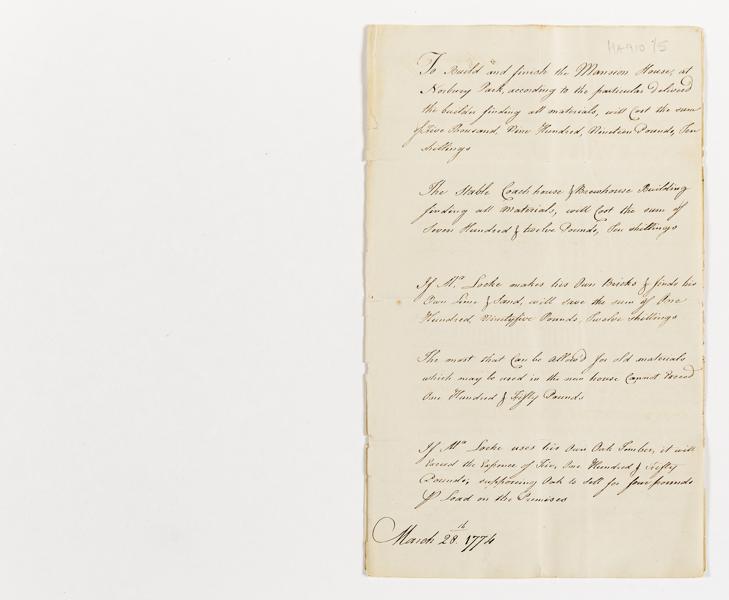 HA910 /5
To Build and finish the Mansion House, at
Norbury Park, according to the particular Deliverd
the builder finding all materials, will Cost the sum
of Five Thousand, Nine Hundred, Nineteen Pounds, Ten
shillings
The Stable Coach house & Brewhouse Building
finding all materials, will Cost the sum of
Seven Hundred & twelve Pounds, Ten shillings
If Mr. Locke makes his Own Bricks & finds his
Own Lime & Sand, will save the sum of One
Hundred, Ninetyfive Pounds, Twelve shillings
The most that Can be allowd for old materials
which may be used in the new house Cannot Exceed
One Hundred & Fifty Pounds
If Mr. Locke uses his Own Oak Timber, it will
Exceed the Expence of Fir, One Hundred & Fifty
Pounds, supposing Oak to Sell for four pounds
Load on the Premises
March 28th. 1774